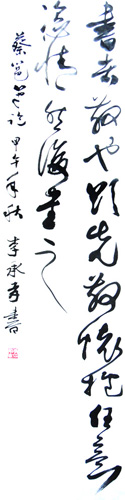 書者散也欲先散懷抱任意
恣情然後書之
蔡邕笔論甲午年秋李承書